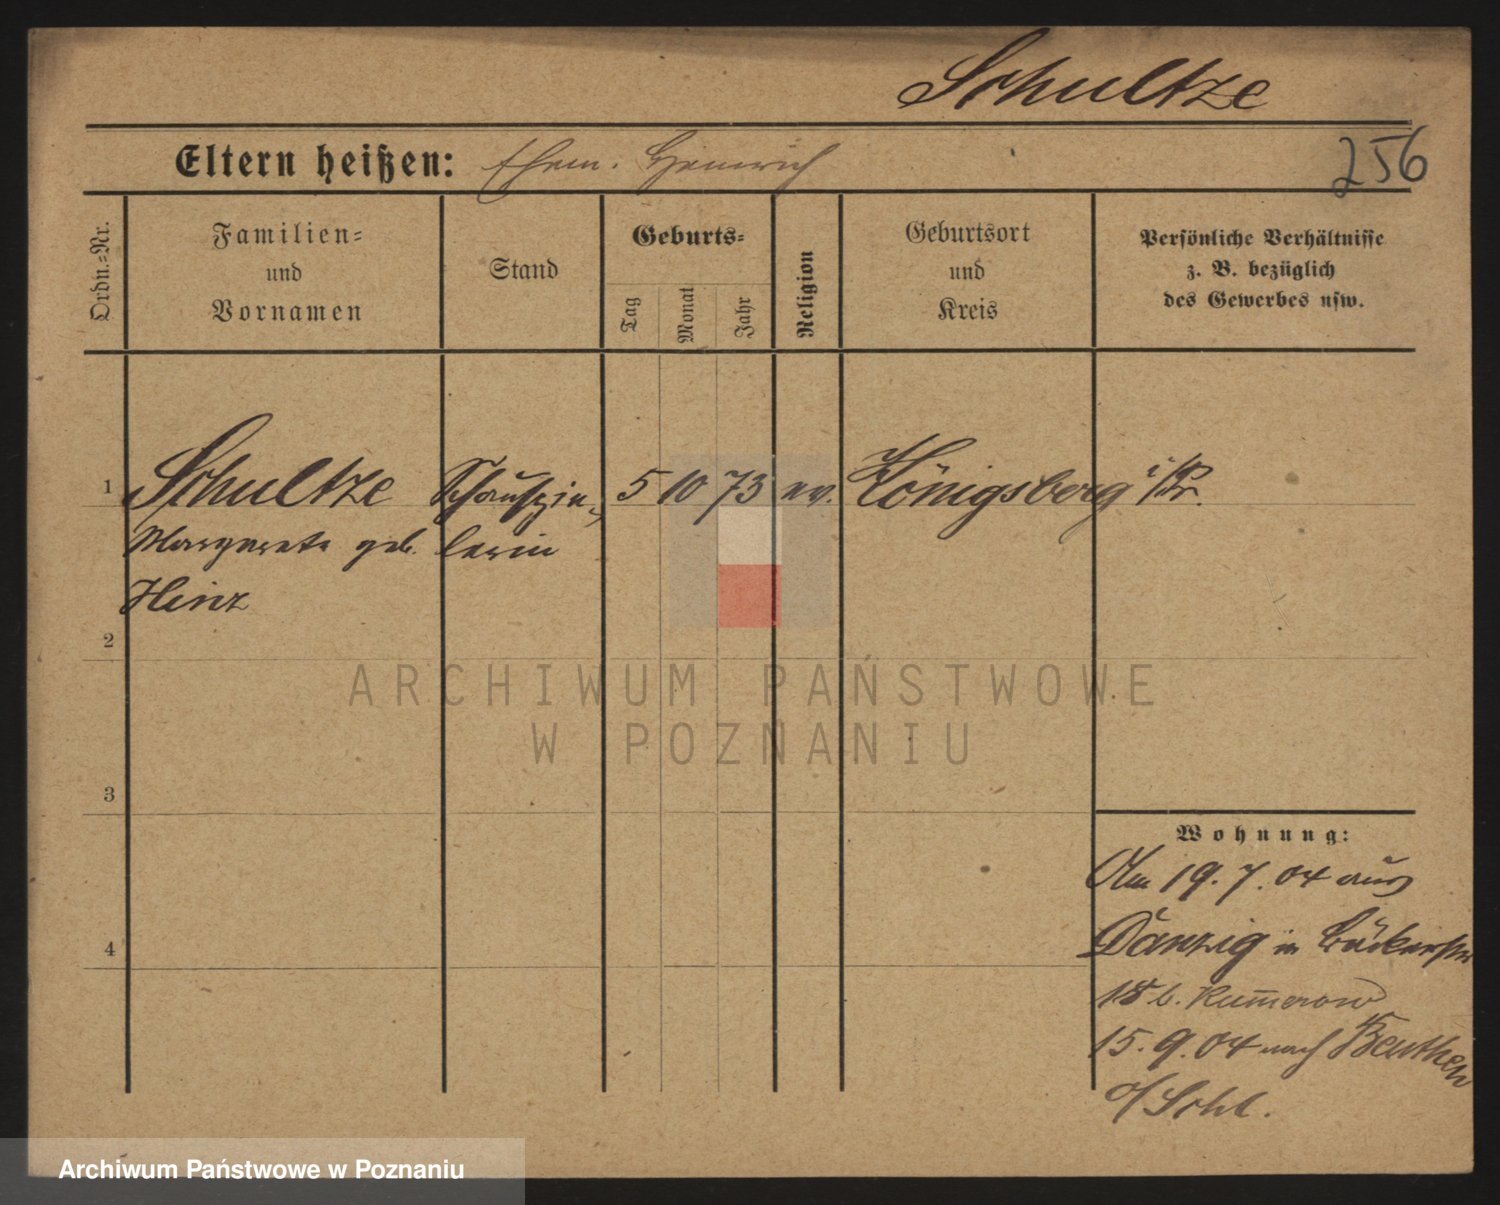 Schultze
Eltern heißen: Ehem. Heinrich
256
Ordn.-Nr.
Familien-
und
Vornamen
Stand
Geburts-
Tag
Monat
Jahr
Religion
Geburtsort
und
Kreis
Persönliche Verhältnisse
z. B. bezüglich
des Gewerbes usw.
1 Schultze Schauspie- 5 10 73 ev. Königsberg i/Pr.
Margarete geb. lerin
Hinz
2
ARCHIWUM PAŃSTWOWE
W POZNANIU
3
Wohnung:
Am 19. 7. 04 aus
4
Danzig in Bäckerstr
18 b. Kum̄erow
15. 9. 04 nach Beuthen
o/Schl.
Archiwum Państwowe w Poznaniu